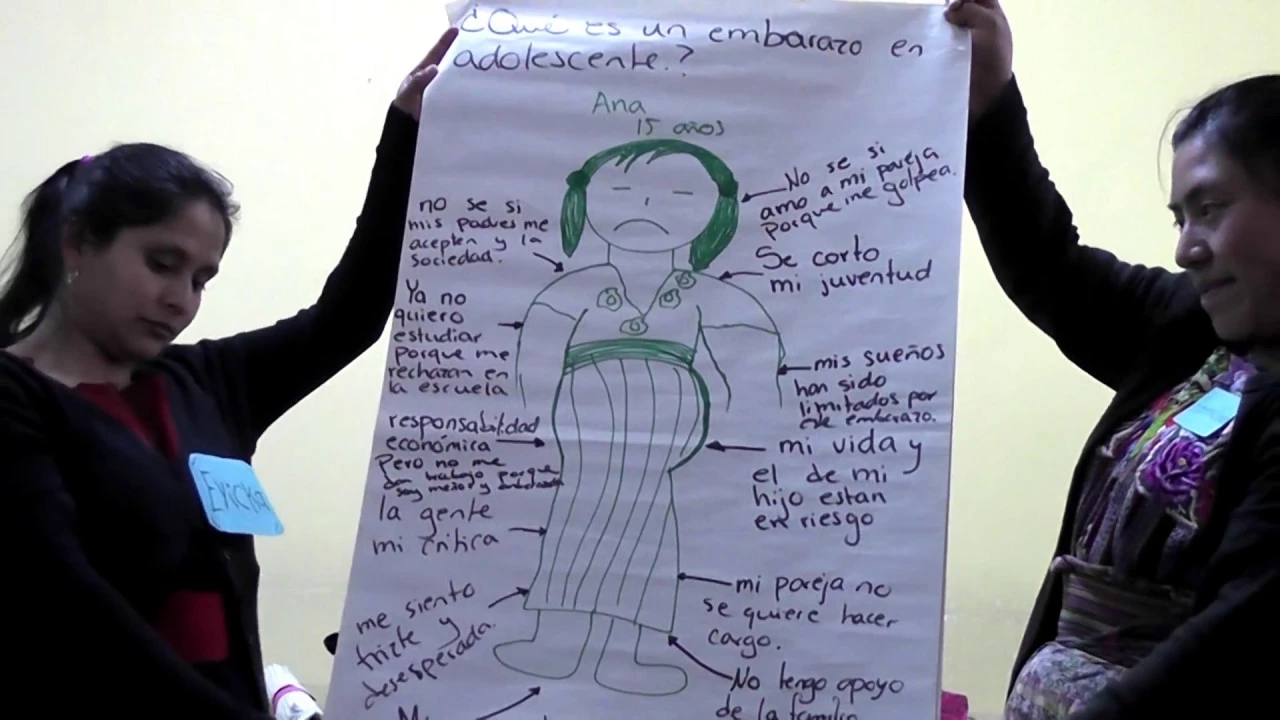 ¿Qué es un embarazo en
adolescente.?
Ana
15 años
no se si
mis padres me
acepten y la
sociedad.
Ya no
quiero
estudiar
porque me
rechazan en
la escuela
responsabilidad
económica
Pero no me
dan trabajo porque
soy menor y
la gente
mi critica
me siento
trizte y
desesperada.
No se si
amo a mi pareja
porque me golpea.
Se corto
mi juventud
mis sueños
han sido
limitados por
este embarazo.
mi vida y
el de mi
hijo estan
en riesgo
mi pareja no
se quiere hacer
cargo.
No tengo apoyo
de la familia
Ericka